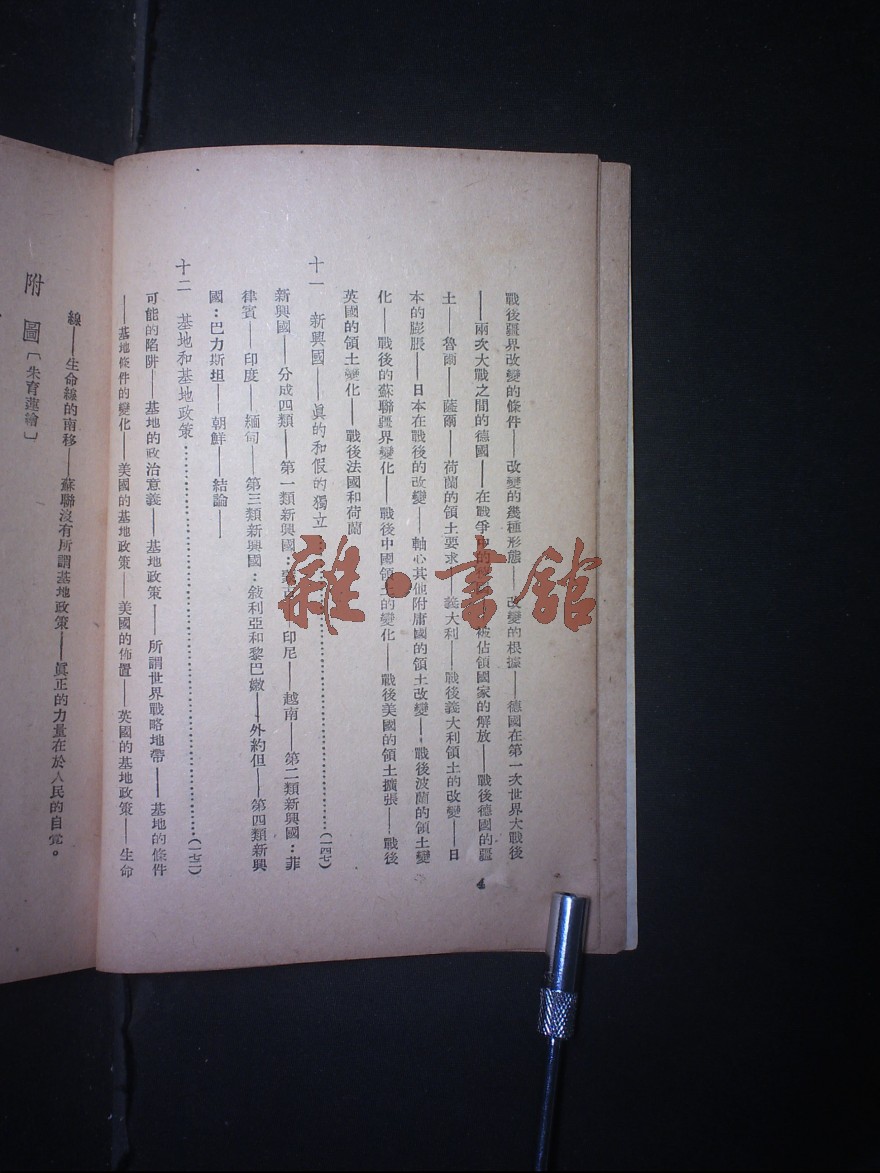 戰後疆界改變的條件——改變的幾種形態——改變的根據——德國在第一次世界大戰後
——兩次大戰之間的德國——在戰爭中的 被佔領國家的解放——戰後德國的疆
土——魯爾——薩爾——荷蘭的領土要求 義大利——戰後義大利領土的改變——日
本的膨脹——日本在戰後的改變——軸心其他附庸國的領土改變——戰後波蘭的領土變
化——戰後的蘇聯疆界變化——戰後中國領土的變化——戰後美國的領土擴張——戰後
英國的領土變化——戰後法國和荷蘭
十一 新興國——眞的和假的獨立……(一四七)
新興國——分成四類——第一類新興國：蒙古——印尼——越南——第二類新興國：菲
律賓——印度——緬甸——第三類新興國：敍利亞和黎巴嫩——外約但——第四類新興
國：巴力斯坦——朝鮮——結論——
十二 基地和基地政策……(一七二)
可能的陷阱——基地的政治意義——基地政策——所謂世界戰略地帶——基地的條件
——基地條件的變化——美國的基地政策——美國的佈置——英國的基地政策——生命
線——生命線的南移——蘇聯沒有所謂基地政策——眞正的力量在於人民的自覺。
附 圖〔朱育蓮繪〕
4
雜·書館